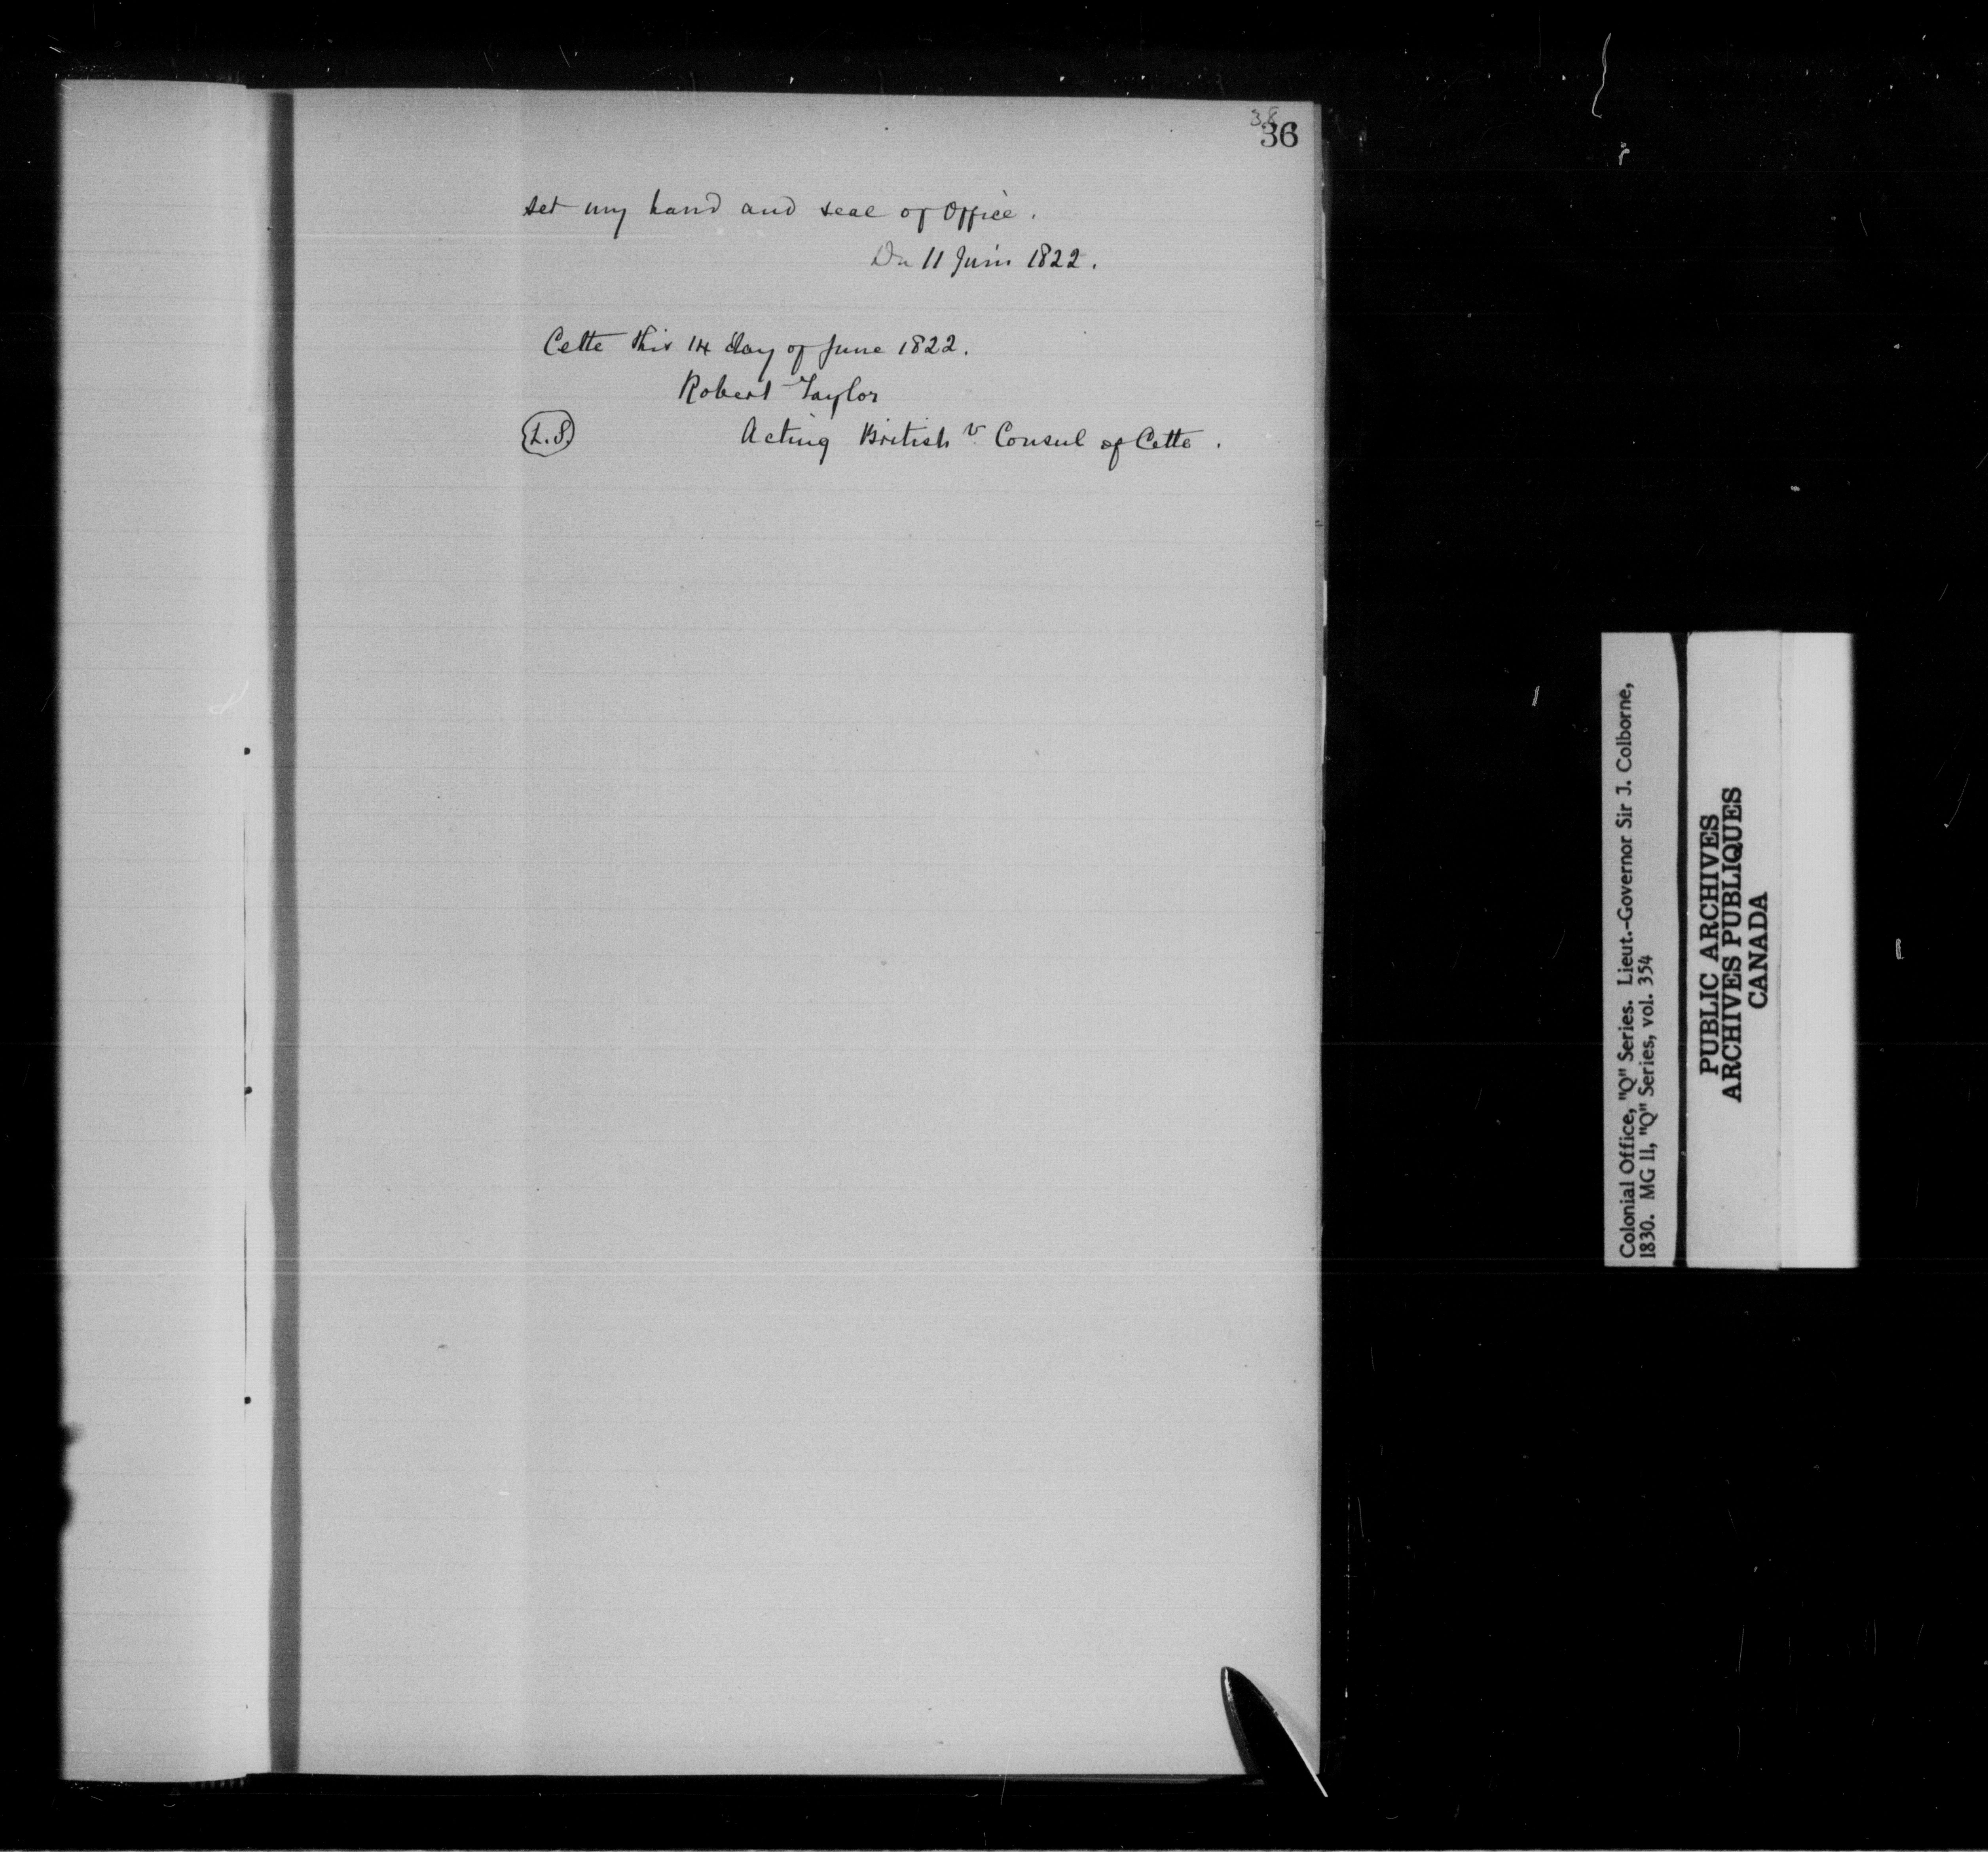 38
36
set my hand and seal of Office.
Du 11 Juin 1822.
Cette this 14 day of June 1822.
Robert Taylor
L.S. Acting British V. Consul of Cette.
Colonial Office, "Q" Series. Lieut.-Governor Sir J. Colborne,
1830. MG 11, "Q" Series, vol. 354
PUBLIC ARCHIVES
ARCHIVES PUBLIQUES
CANADA